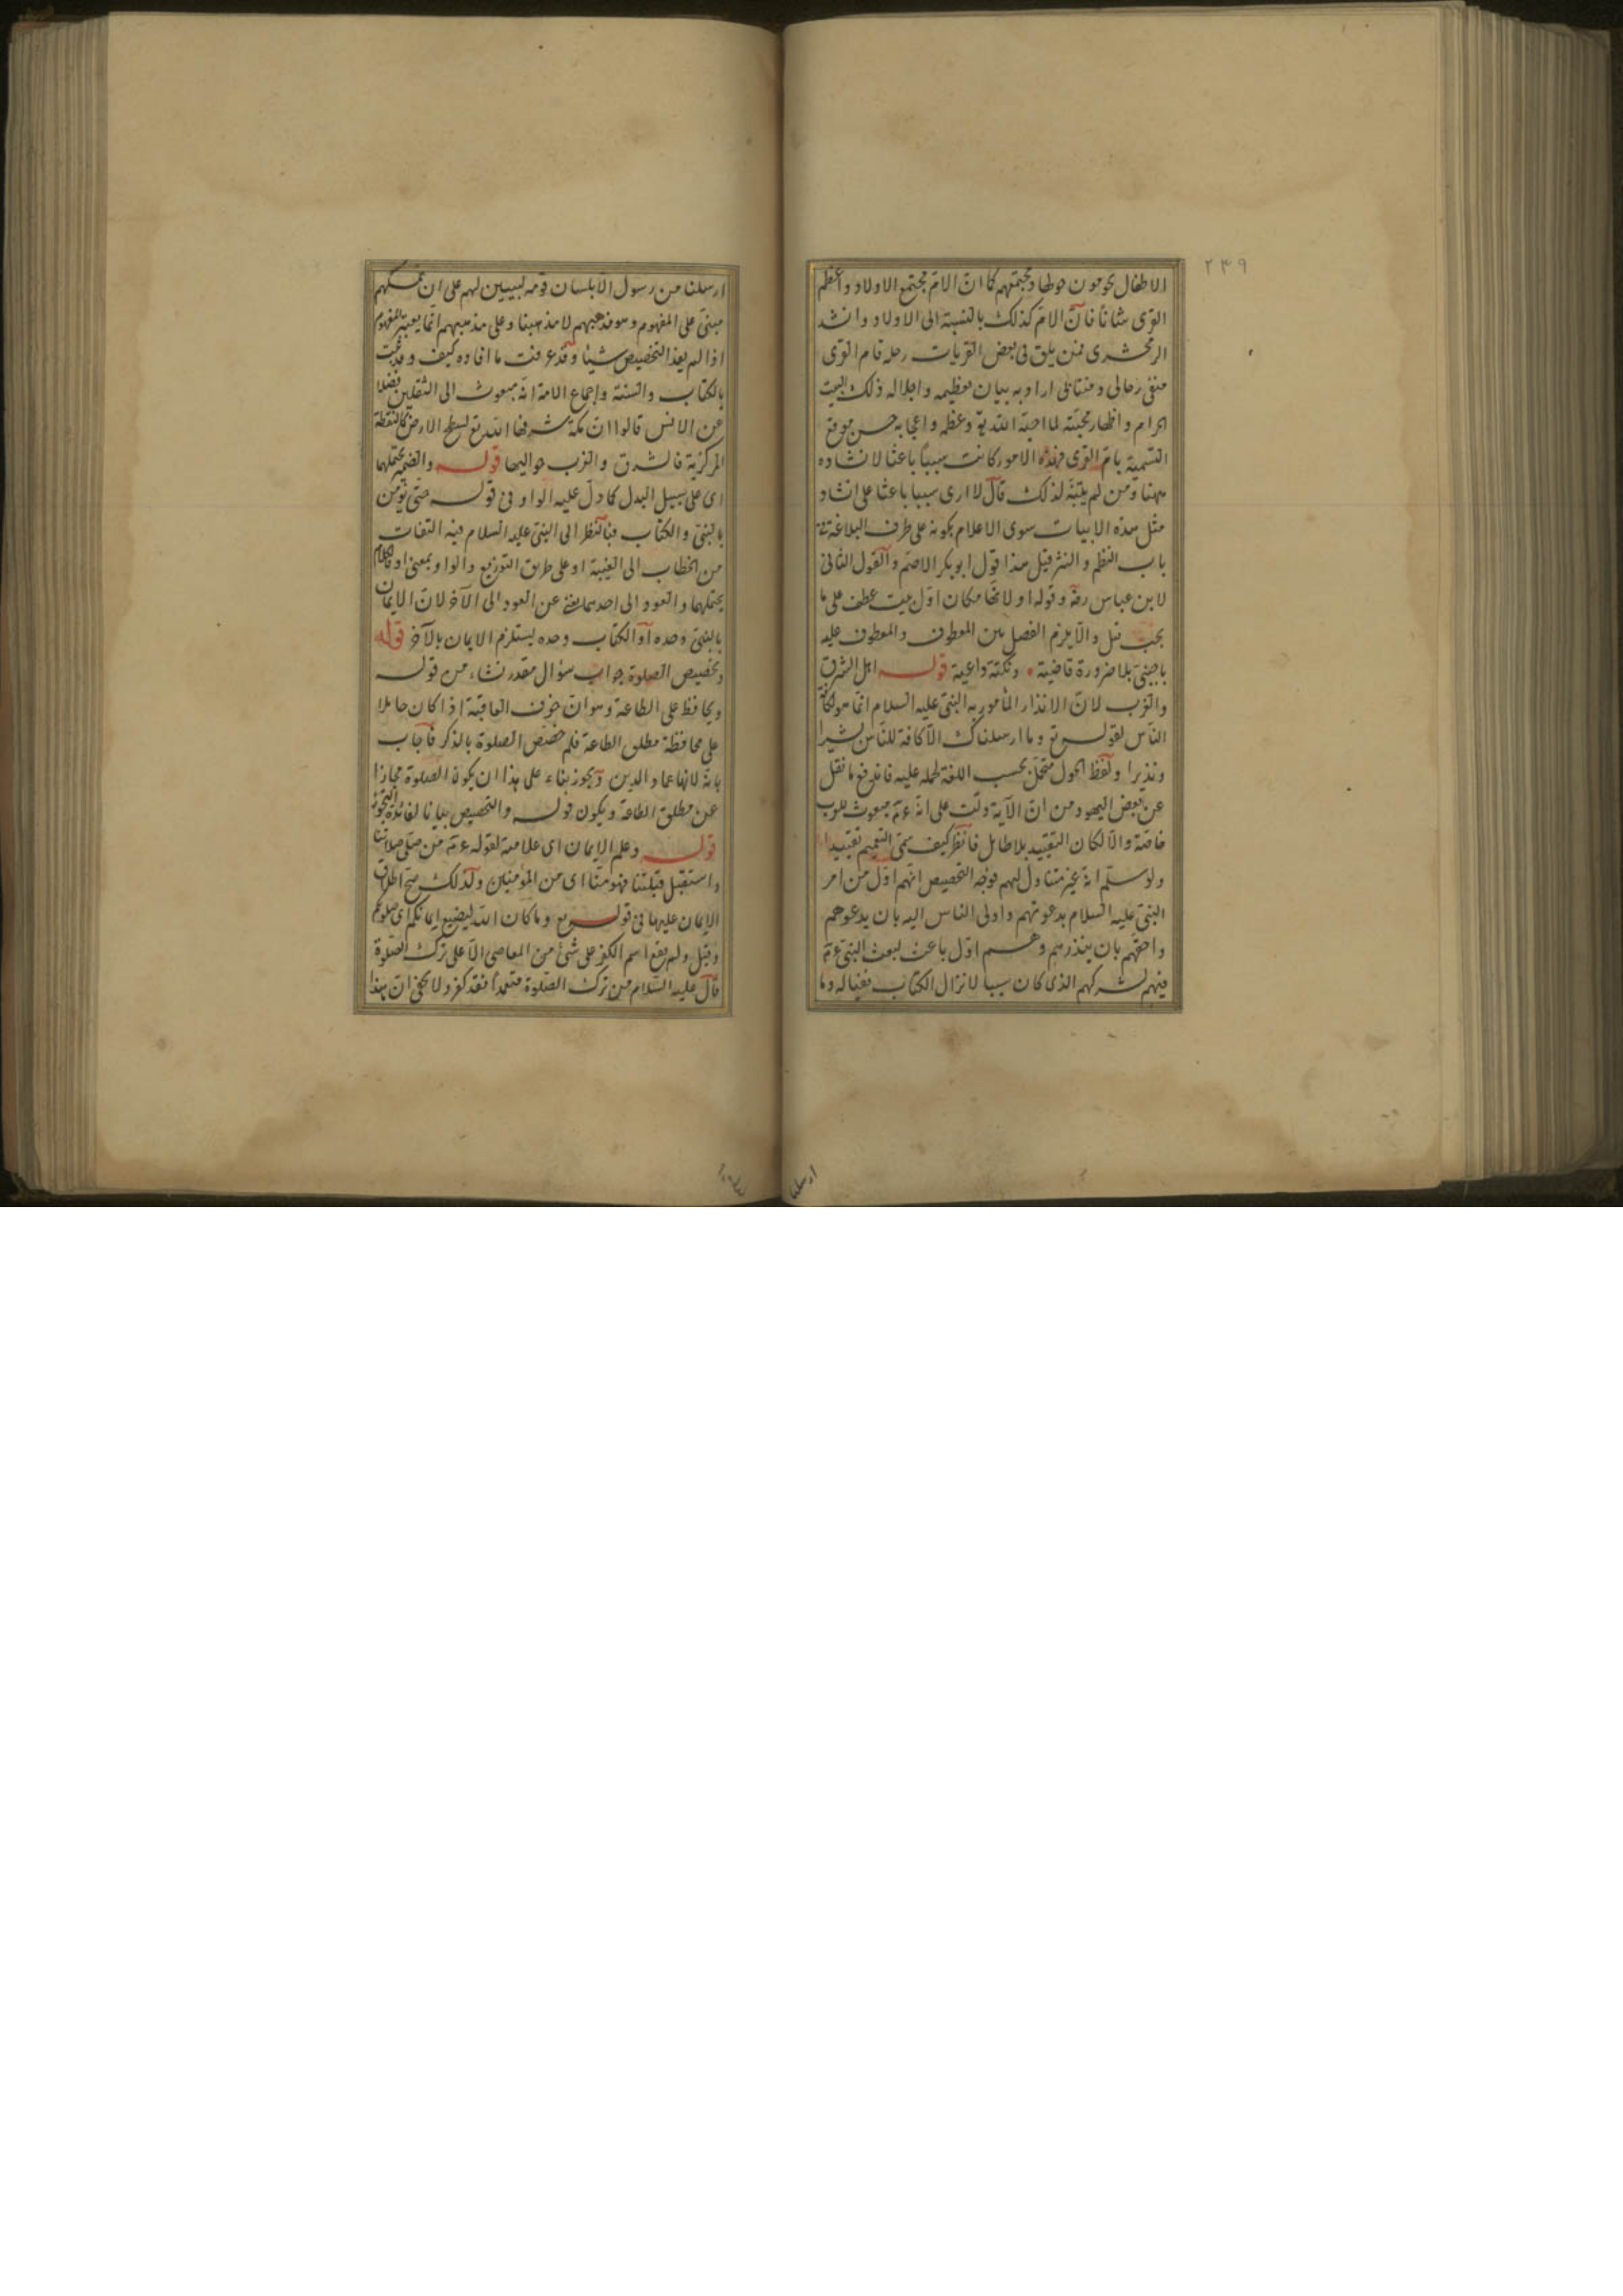 ٢٣٩
الاطفال يحومون حولها ومجتمعهم كما ان الامّ مجتمع الاولاد واعظم
القرى شانا فانّ الامّ كذلك بالنسبة الى الاولاد وانشد
الزمخشرى فمن يلق فى بعض القريات رحله فام القرى
ملقى رحالى ومنتابى اراد به بيان تعظيمه واجلاله ذلك البيت
الحرام واظهار محبّته لما احبّه الله تع وعظمه واعجابه حسن موقع
التسمية بامّ القرى فهذه الامور كانت سببا باعثا لانشاده
ههنا ومن لم يتنبّه لذلك قال لا ارى سببا باعثا على انشاد
مثل هذه الابيات سوى الاعلام بكونه على طرف البلاغة فى
باب النظم والنثر قيل هذا قول ابو بكر الاصم والقول الثانى
لابن عباس رضه وقوله او لانها مكان اول بيت عطف على ما
بجنب قبل والا يلزم الفصل بين المعطوف والمعطوف عليه
باجنبىّ بلا ضرورة قاضية ونكتة داعية قوله اهل الشرق
والغرب لانّ الانذار المأمور به النبى عليه السلام انّما هو لكافة
الناس لقوله تع وما ارسلناك الّا كافة للناس بشيرا
ونذيرا ولفظ الحول متحمّل بحسب اللغة لحمله عليه فاندفع ما نقل
عن بعض اليهود من ان الآية دلّت على انّه عم مبعوث للعرب
خاصّة والّا لكان التقييد بلا طائل فانظر كيف سمّى التعميم تقييدا
ولو سلّم انّه غير متناول لهم فوجه التخصيص انهم اوّل من امر
النبى عليه السلام بدعوتهم واولى الناس اليه بان يدعوهم
واحقهم بان ينذرهم وهم اوّل باعث لبعث النبى عم
فيهم لشركهم الذى كان سببا لانزال الكتاب ففيا له وما
ارسلنا
ارسلنا من رسول الّا بلسان قومه ليبيين لهم على ان تمسكهم
مبنىّ على المفهوم وهو مذهبهم لا مذهبنا وعلى مذهبهم انّما يعتبر المفهوم
اذا لم يفد التخصيص شيئا وقد عرفت ما افاده كيف وقد ثبت
بالكتاب والسنة واجماع الامة انّه مبعوث الى الثقلين فضلا
عن الانس قالوا انّ مكة شرفها الله تع لسطح الارض كالنقطة
المركزية فالشرق والغرب حواليها قوله والضمير يحتملها
اى على سبيل البدل كما دلّ عليه الواو فى قوله حتى يؤمن
بالنبى والكتاب فبالنظر الى النبى عليه السلام فيه التفات
من الخطاب الى الغيبة او على طريق التوزيع والواو بمعنى او فالكلام
يحتملهما والعود الى احدهما يغنى عن العود الى الآخر لانّ الايمان
بالنبى وحده او الكتاب وحده يستلزم الايمان بالآخر قوله
وتخصيص الصلوة جواب سؤال مقدر نشاء من قوله
ويحافظ على الطاعة وهو ان خوف العاقبة اذا كان حاملا
على محافظة مطلق الطاعة فلم خصّص الصلوة بالذكر فاجاب
بانّه لانها عماد الدين ويجوز بناء على هذا ان يكون الصلوة مجازا
عن مطلق الطاعة ويكون قوله والتخصيص بيانا لفائدة التجوز
قوله وعلم الايمان اى علامته لقوله عم من صلّى صلاتنا
واستقبل قبلتنا فهو منّا اى من المؤمنين ولذلك صح اطلاق
الايمان عليها فى قوله تع وما كان الله ليضيع ايمانكم اى صلوتكم
وقيل ولم يقع اسم الكفر على شئ من المعاصى الّا على ترك الصلوة
قال عليه السلام من ترك الصلوة متعمدا فقد كفر ولا يخفى ان هذا